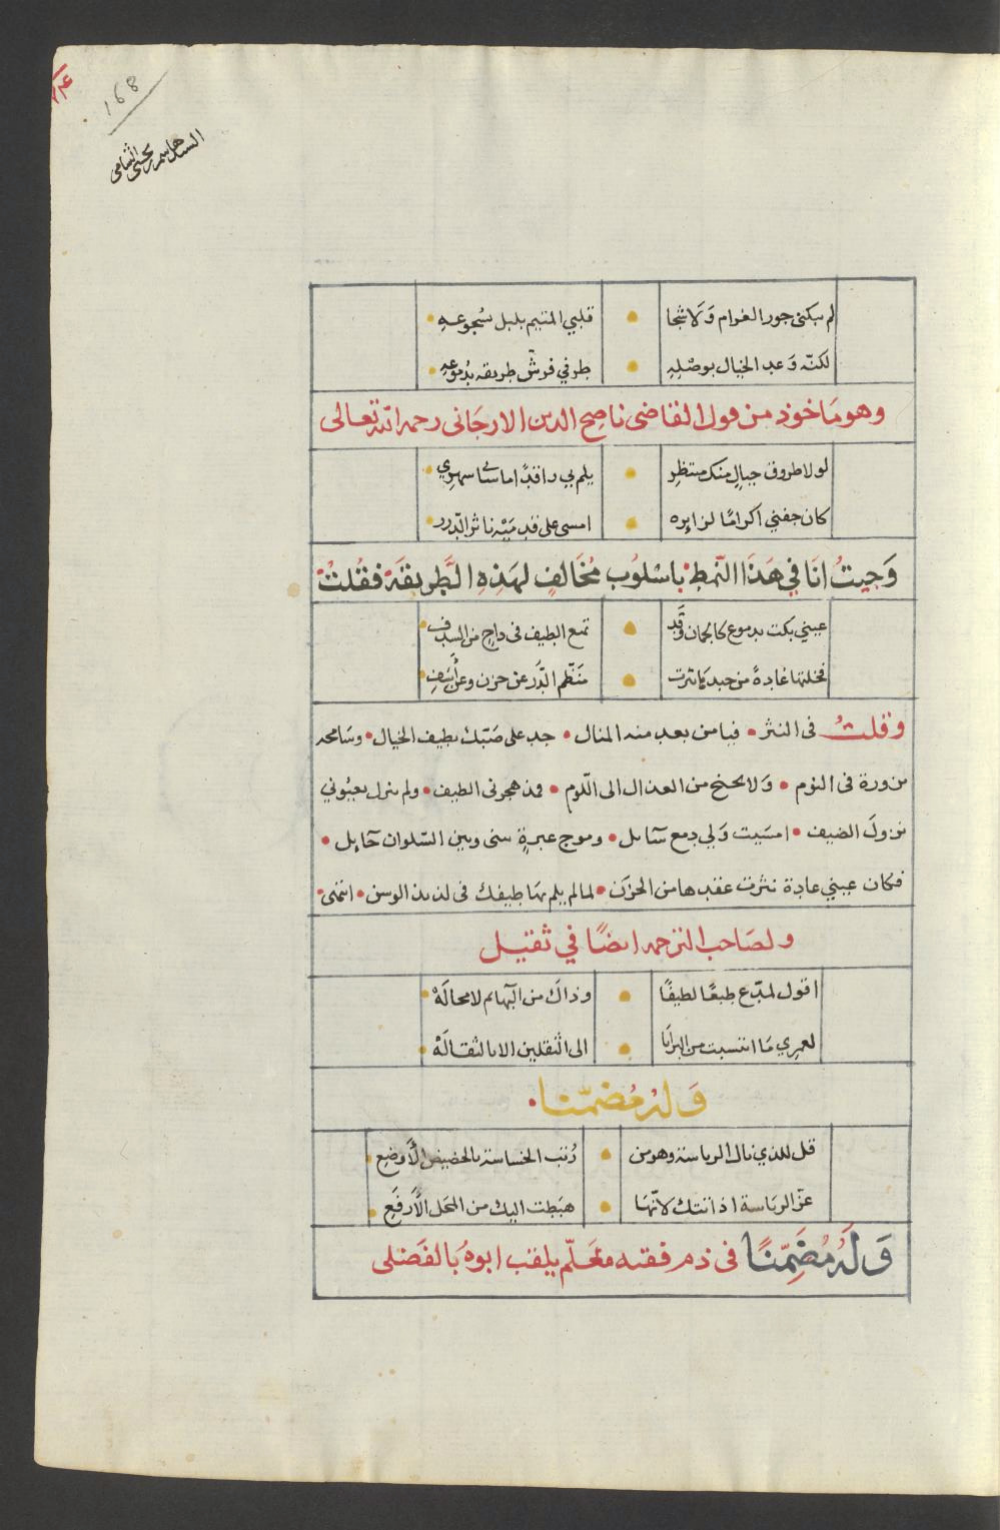 168
السيد هاشم بن يحيى الشامي
لم يبكني جور الغرام وَلَا شجا • قلبي المتيم بلبل سُجوعهِ •
لكنّه وَعد الخيال بوصْلِهِ • طرفي فرشّ طريقه بدُموعهِ •
وهو مَاخوذ من قول القاضى ناصح الدين الارجَانى رحمه الله تعالى
لولا طروق خيالٍ منك منتظرٍ • يلم بي راقدًا ما سهري •
كان جفني اكرامًا لزايره • امسى على قدميْه ناثر الدّرر •
وَجيتُ انَا في هَذَا النّمطِ باسْلوُب مُخَالفٍ لهَذِهِ الطَّريقَةِ فَقُلتُ
عيني بكت بدموع كالجُمان وَقَد • تمنع الطيف فى داجٍ من السدف •
فخلتها غادةً من جيدهَا نثرت • مُنَظّم الدَّر عن حزن وعن أسَفِ •
وقلتُ فى النثر • فيا من بعد منه المنال • جد على صَبّك بطيف الخيال • وسَامحه
بزورة فى النوم • وَلا تجنح من العذال الى اللّوم • فمذ هجرنى الطيف • ولم ينزل بعيُوني
نزولَ الضيف • امسَيت وَلي دمع سَايل • وموج عبرةٍ بينى وبين السّلوان حَايل •
فكان عيني غادة نثرت عقدها من الحزَن • لما لم يلم بهَا طيفك فى لذيذ الوسن • انتهى •
ولصَاحب الترجمه ايضًا في ثقيل
اقول لمدّعٍ طبعًا لطيفًا • وذاكَ من البهايم لا محالَهْ •
لعمري مَا انتسبت من البرايَا • الى الثقلين الا بالثقالَهْ •
وَلهُ مُضمّنا •
قل للذي نال الرياسة وهو من • رُتب الخساسة بالحضيض الأوضعِ •
عزّ الريَاسة اذ اتتك لانّهَا • هبَطت اليك من المحَل الأرفَعِ •
وَلَهُ مُضَمِّنًا فى ذم فقيه معَلّم يلقب ابوهُ بَالفَضلى